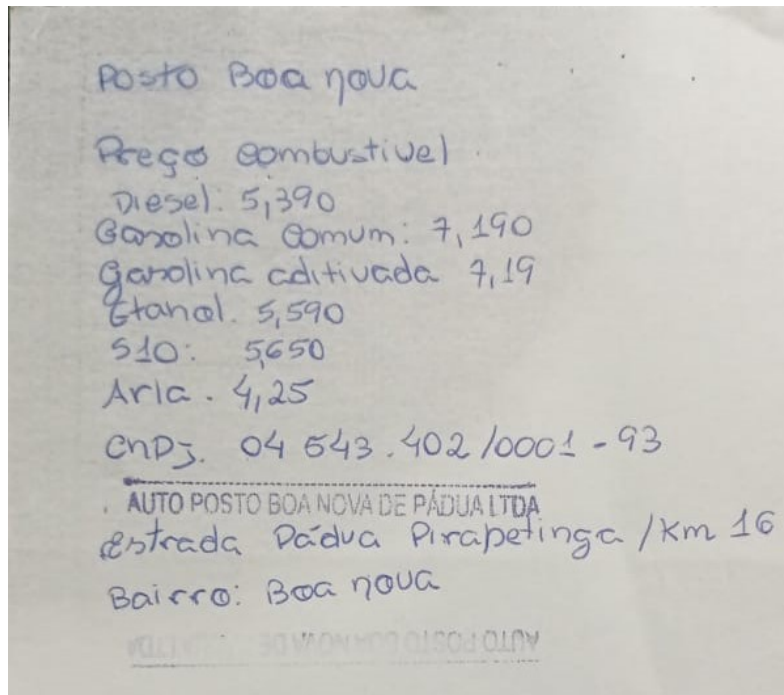 Posto Boa nova
Preço combustivel
Diesel: 5,390
Gasolina Comum: 7,190
gasolina aditivada 7,19
Etanol. 5,590
S10: 5,650
Arla. 4,25
CNPJ. 04 543.402/0001-93
AUTO POSTO BOA NOVA DE PÁDUA LTDA
estrada Pádua Pirapetinga / Km 16
Bairro: Boa nova
AUTO POSTO BOA NOVA DE LTDA